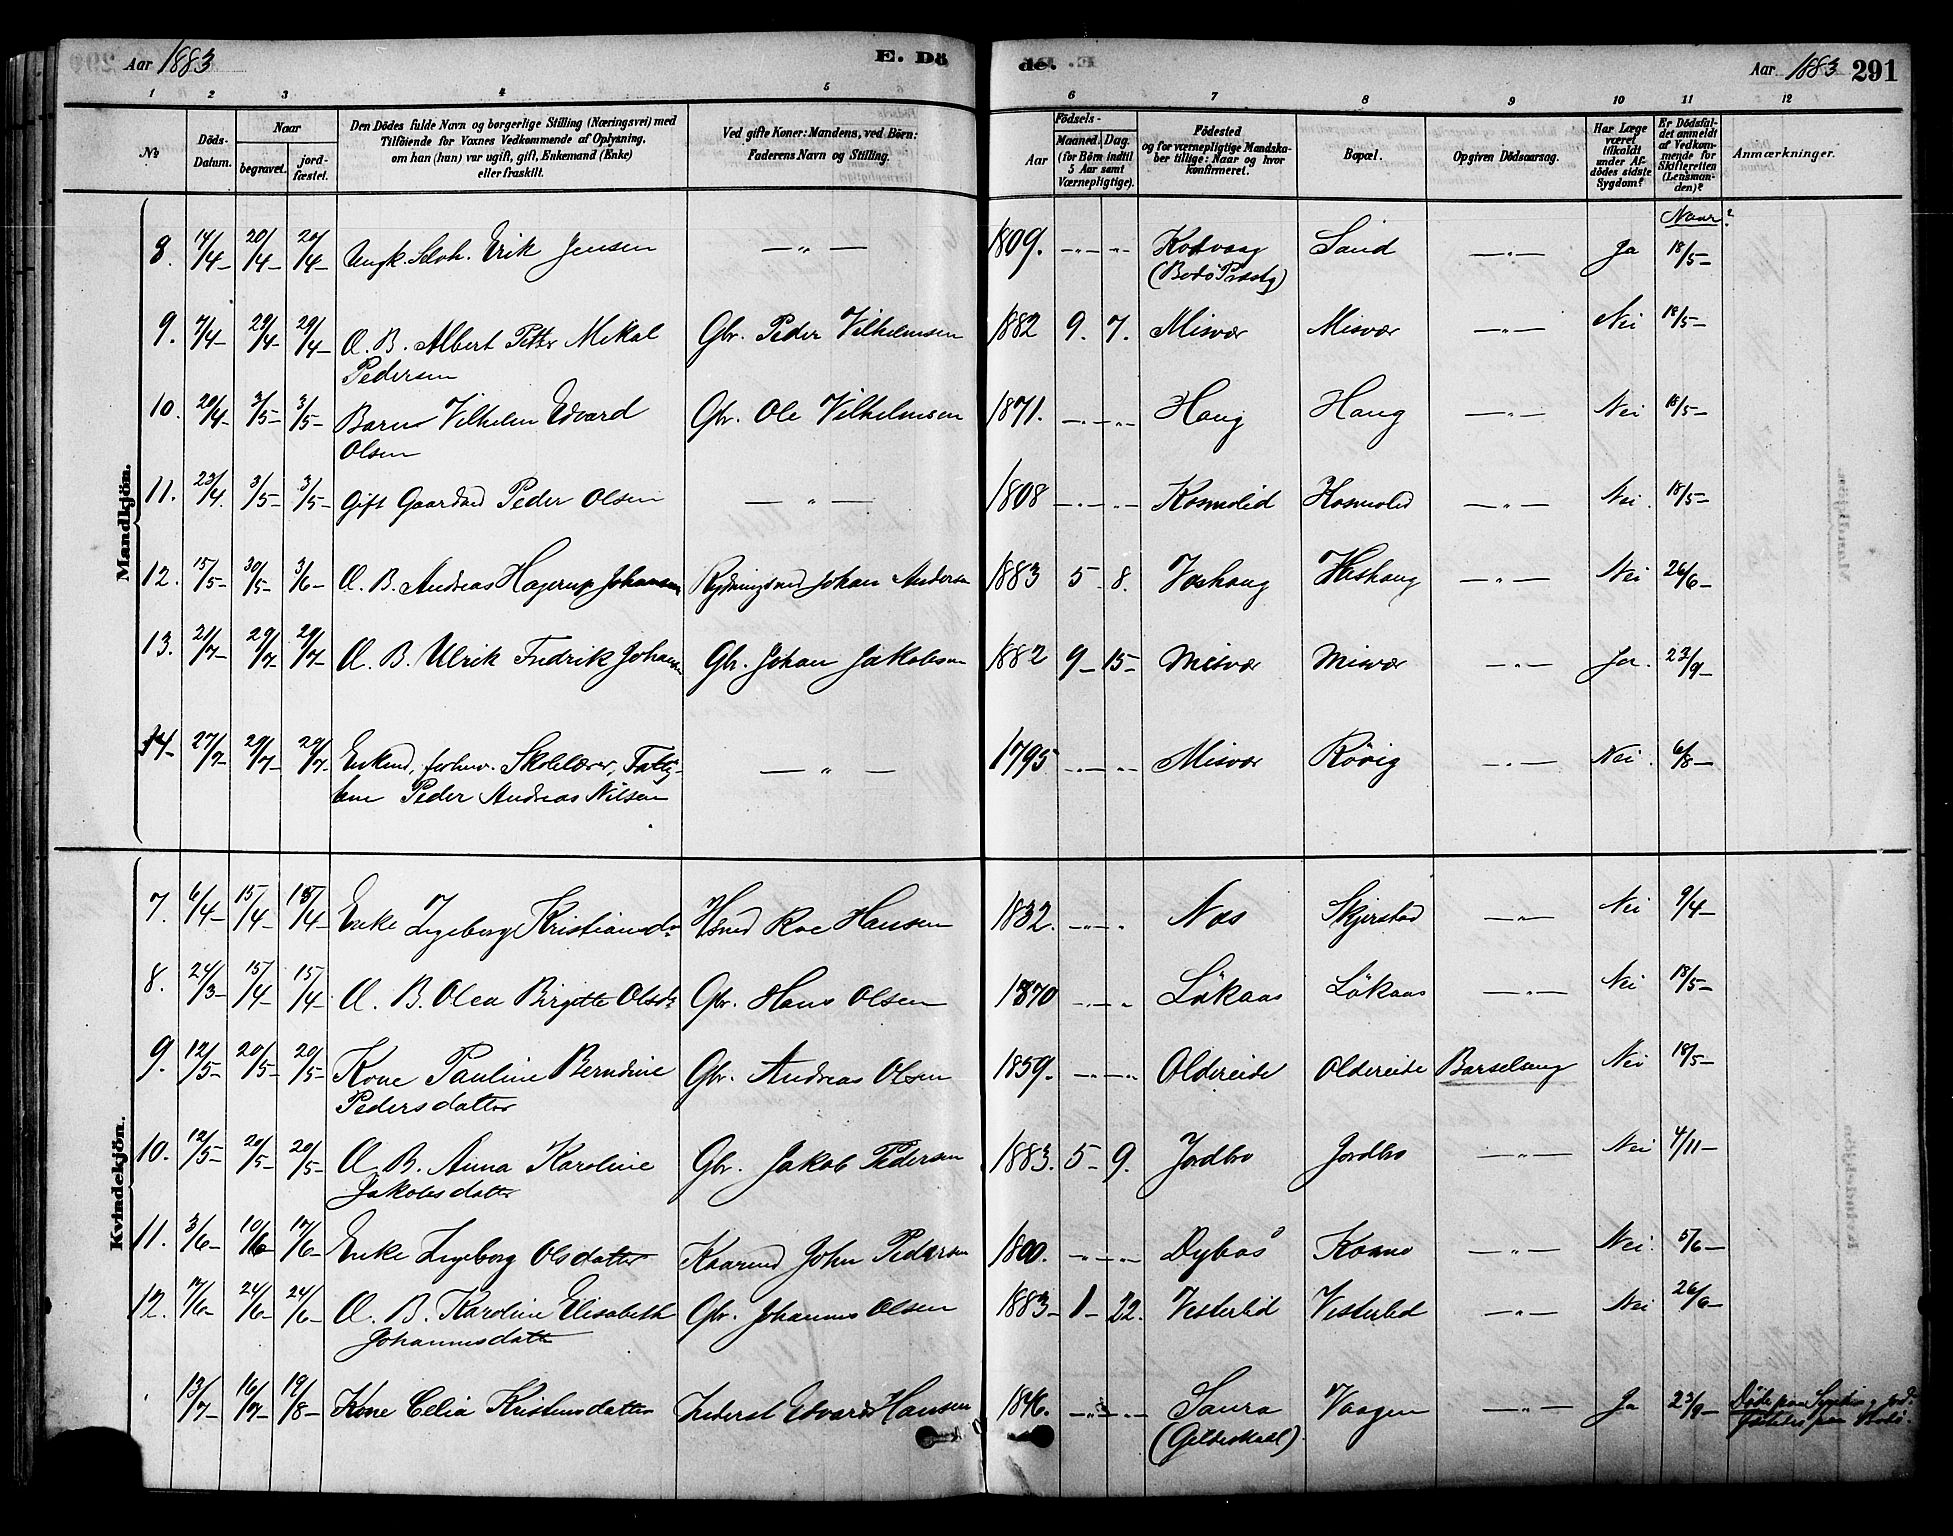 Aar 1883 E. Dö de. Aar 1883 291
1 2 3 4 5 6 7 8 9 10 11 12
№ Döds-Datum. Naar begravet. jord-fæstet. Den Dödes fulde Navn og borgerlige Stilling (Næringsvei) med Tilföiende for Voxnes Vedkommende af Oplysning, om han (hun) var ugift, gift, Enkemand (Enke) eller fraskilt. Ved gifte Koner: Mandens, ved Börn: Faderens Navn og Stilling. Födsels- Aar Maaned. Dag. (for Börn indtil 5 Aar samt Værnepligtige). Födested og for værnepligtige Mandskaber tillige: Naar og hvor konfirmeret. Bopæl. Opgiven Dödsaarsag. Har Læge været tilkaldt under Afdödes sidste Sygdom? Er Dödsfaldet anmeldt af Vedkommende for Skifteretten (Lensmanden)? Anmærkninger.
Naar?
Mandkjön.
8. 14/4 20/4 20/4 Ungk. Selvh. Erik Jensen — " — 1809. Kodvaag Sand — " — Ja 18/5
(Bodö Præstg)
9. 7/4 29/4 29/4 Æ. B. Albert Petter Mikal Gbr. Peder Vilhelmsen 1882 9. 7. Misvær Misvær — " — Nei 18/5
Pedersen
10. 20/4 3/5 3/5 Barn Vilhelm Edvard Gbr. Ole Vilhelmsen 1871. Haug Haug — " — Nei 18/5
Olsen
11. 23/4 3/5 3/5 Gift Gaardmd Peder Olsen — " — 1808 Kosmolid Kosmolid — " — Nei 18/5
12. 15/5 30/5 3/6 Æ. B. Andreas Hagerup Johansen Rydningsmd Johan Anders 1883 5 8. — " — Nei 26/6
13. 21/7 29/7 29/7 Æ. B. Ulrik Fredrik Johansen Gbr. Johan Jakobsen 1882 9 15 Misvær Misvær — " — Ja. 23/9
14 27/7 29/7 29/7 Enkemd, forhenv. Skolelærer, Fattig-
lem Peder Andreas Nilsen — " — 1795 Misvær Rövig — " — Nei. 6/8
Kvindekjön.
7. 6/4 15/4 15/4 Enke Ingeborg Kristiansdr Hsmd Roe Hansen 1832. Næs Skjerstad — " — Nei 9/4
8. 24/3 15/4 15/4 Æ. B. Olea Birgitte Olsdr Gbr. Hans Olsen 1870 Lökaas Lökaas — " — Nei 18/5
9. 12/5 20/5 20/5 Kone Pauline Berndine Gbr. Andreas Olsen 1859. Oldereide Oldereide Barselseng Nei 18/5
Pedersdatter
10. 12/5 20/5 20/5 Æ. B. Anna Karoline Gbr. Jakob Pedersen 1883. 5 9. Jordbro Jordbro — " — Nei 4/11
Jakobsdatter
11. 3/6 10/6 17/6 Enke Ingeborg Olsdatter Kaarmd John Pedersen 1800. Dybås Kosmo — " — Nei. 5/6
12. 17/6 24/6 24/6 Æ. B. Karoline Elisabeth Gbr. Johannes Olsen 1883 1 22. Vesterlid Vesterlid — " — Nei 26/6
Johannesdatter
13/7 16/7 19/8 Kone Celia Kristensdatter Inderst Edvard Hansen 1846. Saura Vaagen — " — Ja 23/9 Döde paa
(Gildeskaal).